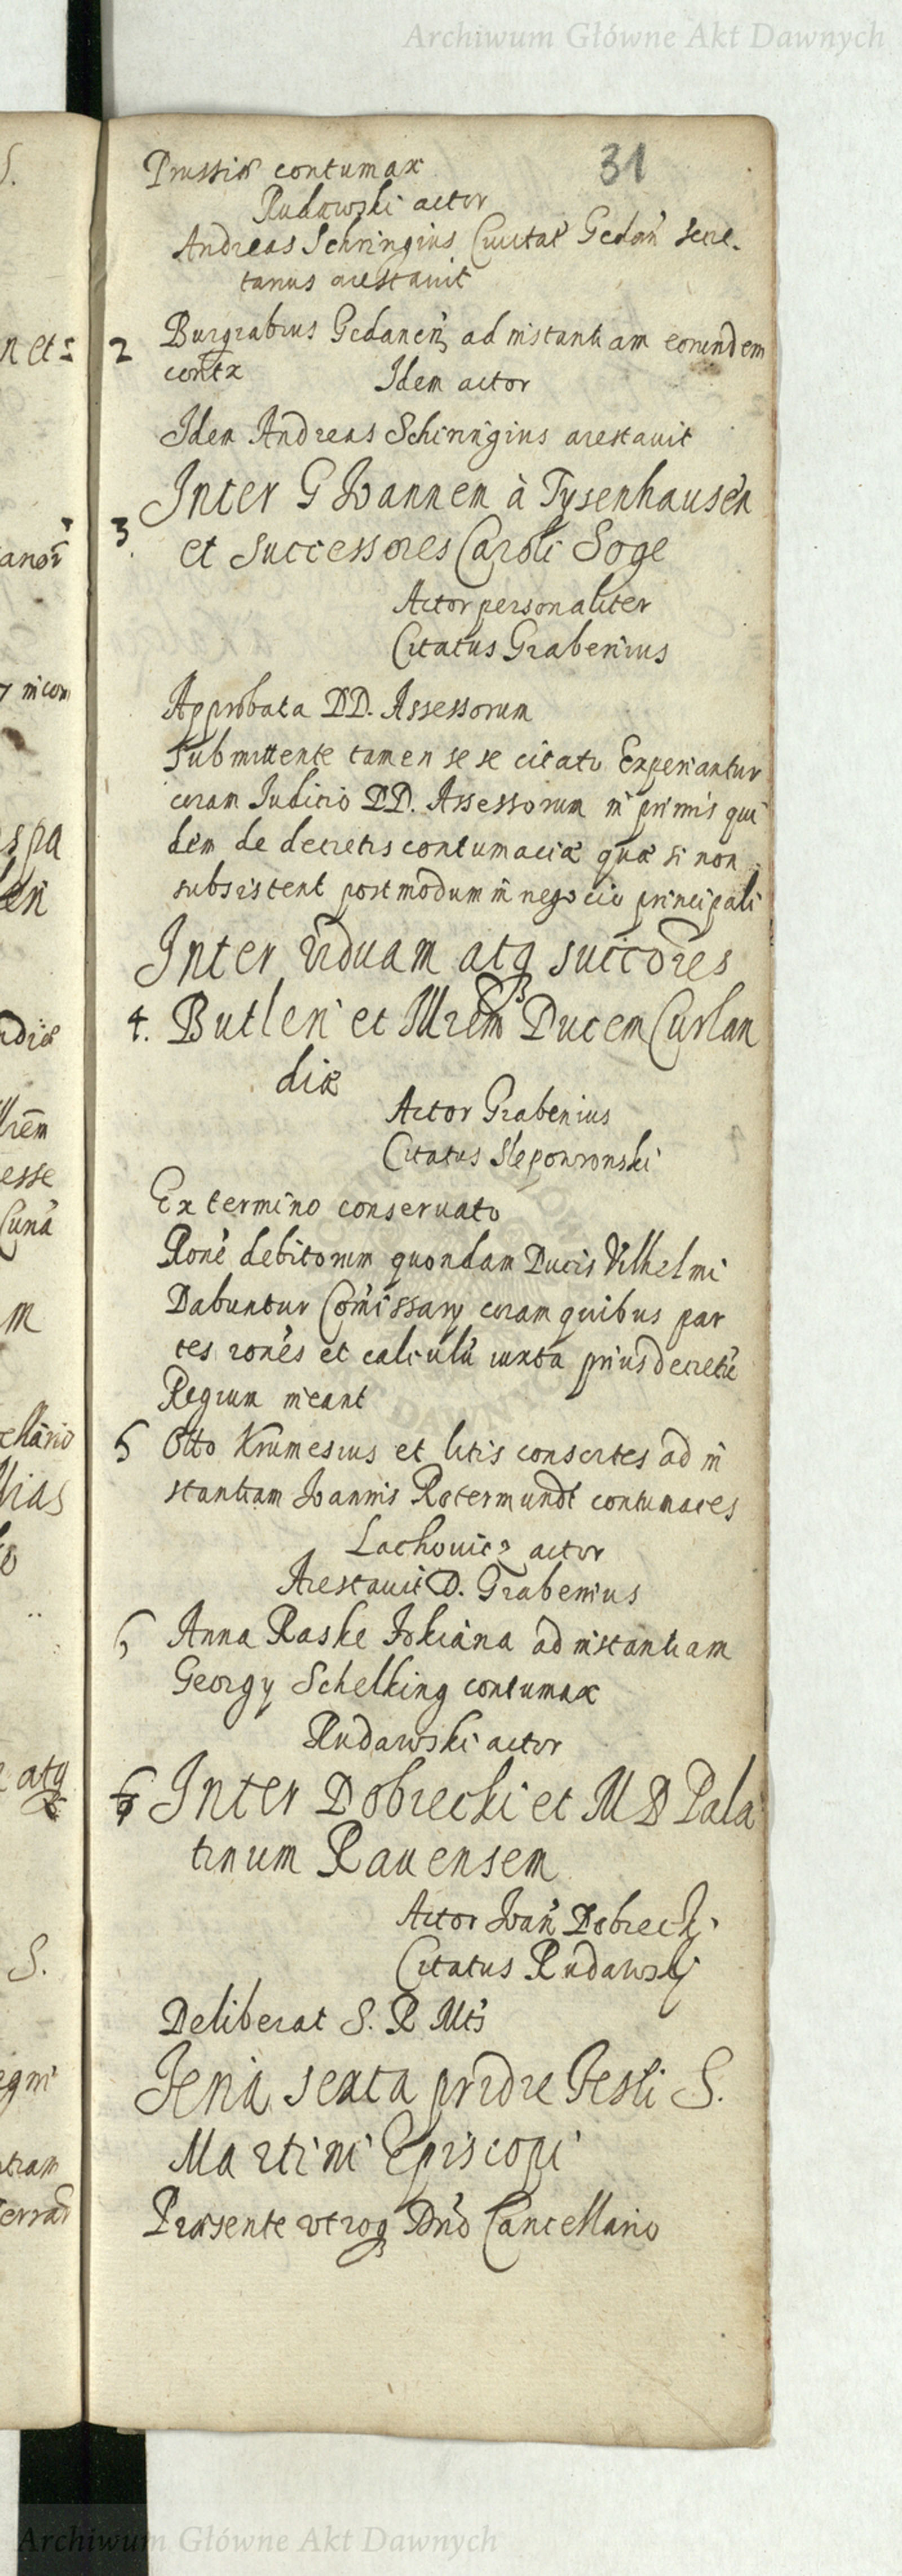 Archiwum Główne Akt Dawnych
31
Prussiæ contumax
Rudowski actor
Andreas Schringius Civitat Gedan secre-
tarius arestavit
2 Burgrabius Gedanen ad instantiam eorundem
contx Idem actor
Idem Andreas Schiringius arestavit
Inter G Joannem à Tysenhausen
3. et successores Caroli Soge
Actor personaliter
Citatus Grabenius
Approbata DD. Assessorum
submittente tamen se se citato Experiantur
coram Judicio DD. Assessorum in primis qui
dem de decretis contumaciæ quæ si non
subsistent postmodum in negocio principali
Inter viduam atq succores
4. Butleri et Illrem Ducem Curlan
diæ
Actor Grabenius
Citatus Slepowronski
Ex termino conservato
Rone debitorum quondam Ducis Vilhelmi
Dabuntur Comissarij coram quibus par
tes rones et calculu iuxta prius decretu
Regium ineant
5 Otto Krumesius et litis consortes ad in
stantiam Joannis Rotermundt contumaces
Lachouicz actor
Arestauit D. Grabenius
6 Anna Raske Jokiana ad instantiam
Georgy Schelking contumax
Rudawski actor
6 Inter Dobrecki et M D Pala
tinum Rauensem
Actor Joan Dobrecki
Citatus Rudawskj
Deliberat S. R Mts
Feria sexta pridie Festi S.
Martini Episcopi
Præsente vtroq Dno Cancellario
n et
anor
7 incon
spa
rdiæ
llrem
esse
Cuna
m
ellario
lias
atq
S.
egni
Archiwum Główne Akt Dawnych